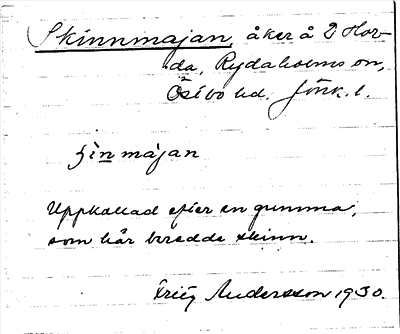 Skinnmajan, åker å 2 Hor-
da, Rydaholms sn,
Östbo hd. Jönk. l.
ʃìnmàjan
Uppkallad efter en gumma,
som här beredde skinn.
Andersson 1930.